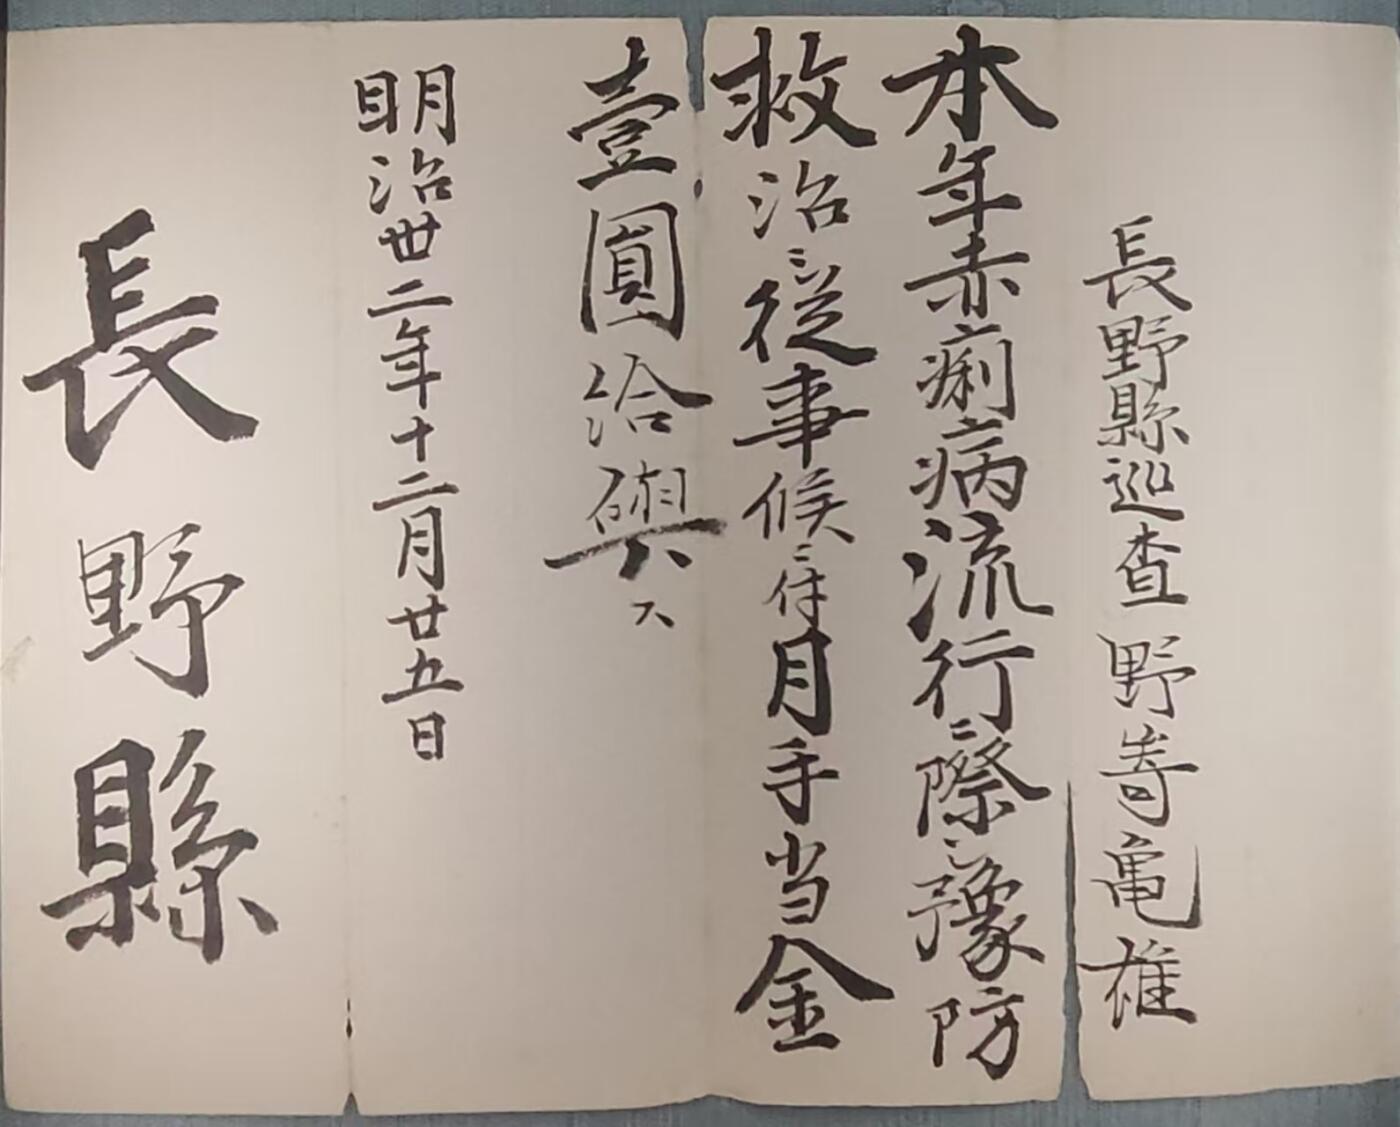 長野縣巡査 野嵜亀雄
本年赤痢病流行ニ際シ豫防
救治ニ従事候ニ付月手当金
壹圓給與ス
明治丗二年十二月廿五日
長野縣